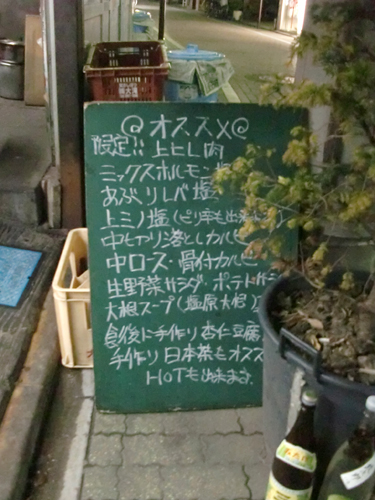 @オススメ@
限定!! 上ヒレ肉
ミックスホルモン塩
あぶりレバ塩
上ミノ塩(ピリ辛も出来
中とろり落としカルビ
中ロース・骨付カルビ
生野菜サラダ・ポテトサラ
大根スープ(塩原大根)
食後に手作り杏仁豆腐
手作り日本茶もオスス
HOTも出来ます。